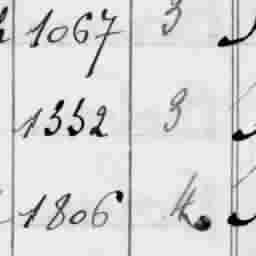 1067 3
1332 3
1806 4.